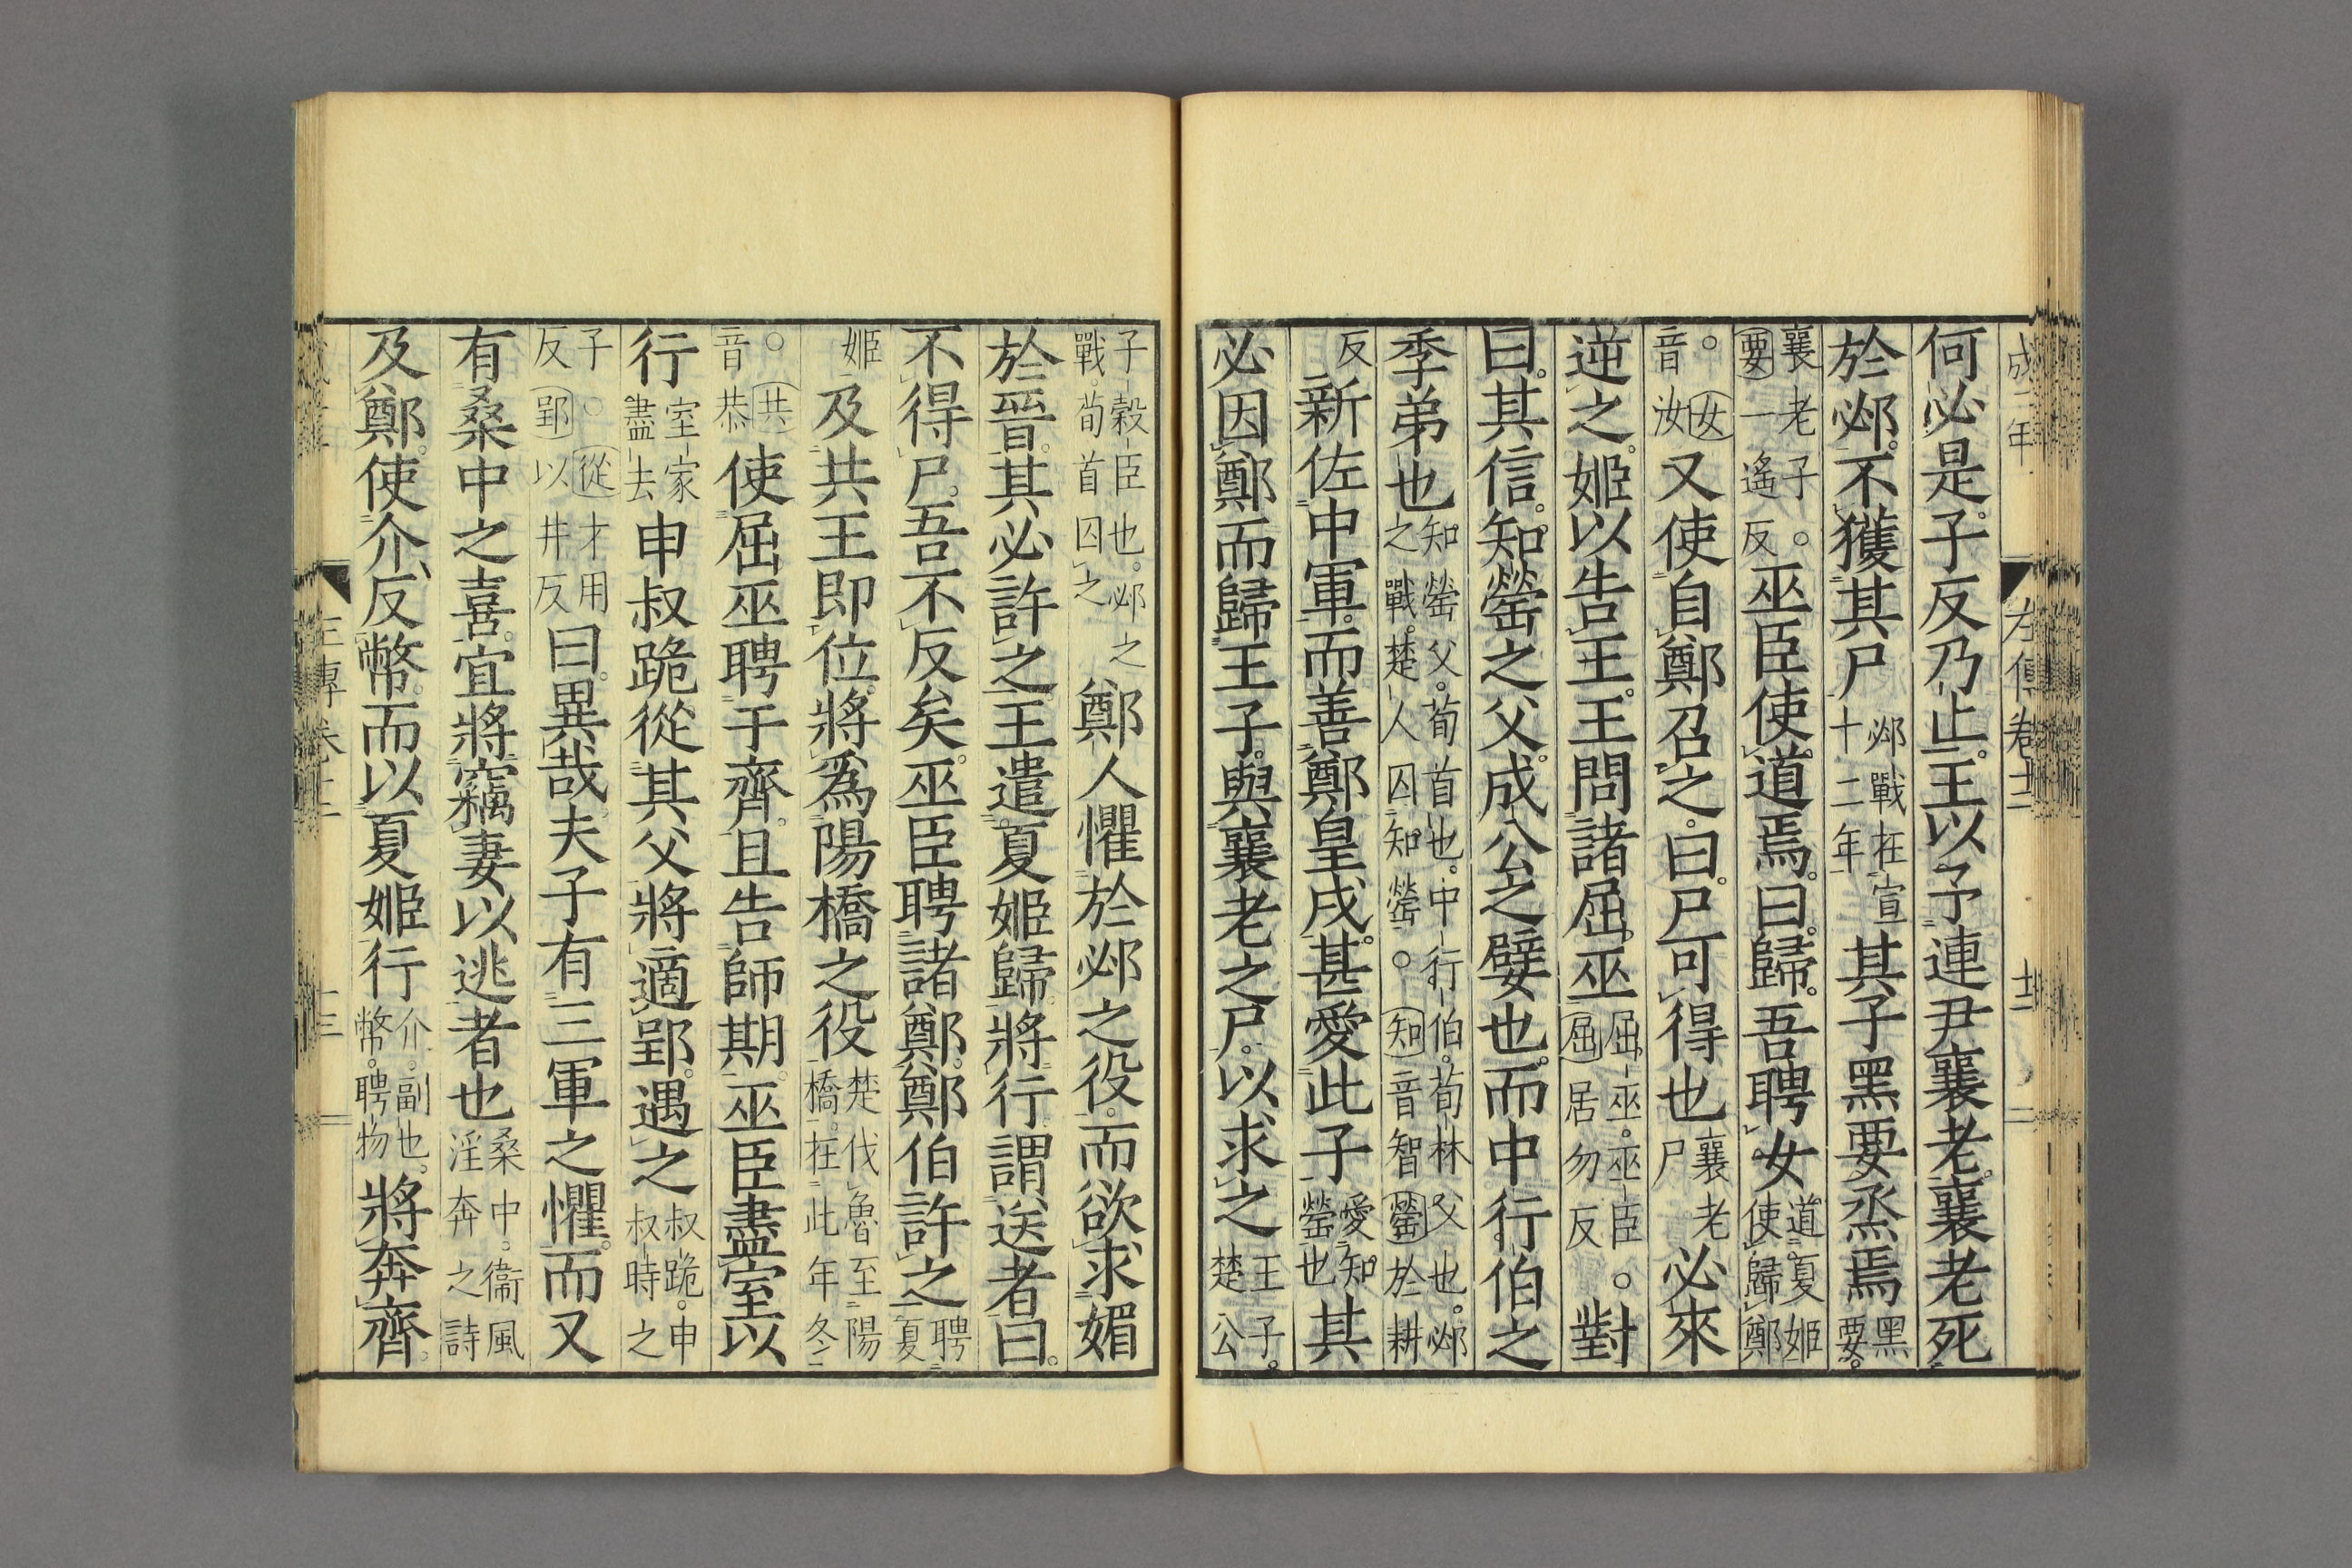 左傳卷十二
何必是。子反乃止。王以予連尹襄老。襄老死
於邲。不獲其尸邲戰在宣十二年其子黑要烝焉黑要。
襄老子。要一遙反巫臣使道焉。曰。歸。吾聘女道夏姬使歸鄭
。女音汝又使自鄭召之。曰。尸可得也襄老尸必來
逆之。姬以告王。王問諸屈巫屈巫。巫臣。屈居勿反對
曰。其信。知罃之父。成公之嬖也。而中行伯之
季弟也知罃父。荀首也。中行伯。荀林父也。邲之戰。楚人囚知罃。知音智罃於耕
反新佐中軍。而善鄭皇戌。甚愛此子愛知罃也其
必因鄭而歸王子。與襄老之尸。以求之王子。楚公
子穀臣也。邲之戰。荀首囚之鄭人懼於邲之役。而欲求媚
於晉。其必許之。王遣夏姬歸。將行。謂送者曰。
不得尸。吾不反矣。巫臣聘諸鄭。鄭伯許之聘夏
姬及共王即位。將爲陽橋之役楚伐魯至陽橋。在此年冬
。共音恭使屈巫聘于齊。且告師期。巫臣盡室以
行室家盡去申叔跪從其父將適郢。遇之叔跪。申叔時之
子。從才用反郢以井反曰。異哉。夫子有三軍之懼。而又
有桑中之喜。宜將竊妻以逃者也桑中。衞風淫奔之詩
及鄭。使介反幣。而以夏姬行介。副也。幣。聘物將奔齊。